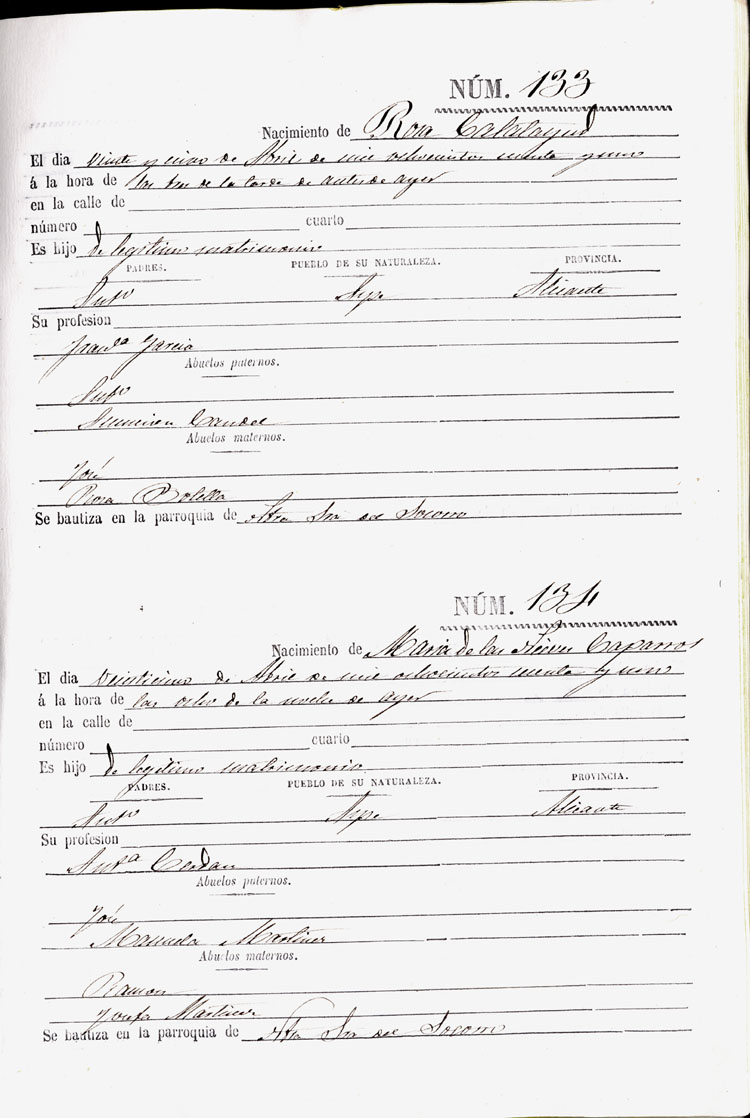 NÚM. 133
Nacimiento de Rosa Calatayud
El dia veinte y cinco de Abril de mil ochocientos noventa y uno
á la hora de las tres de la tarde de antes de ayer
en la calle de
número cuarto
Es hijo de legítimo matrimonio
PADRES. PUEBLO DE SU NATURALEZA. PROVINCIA.
Antº Aspe Alicante
Su profesion
Franᶜᵃ Garcia
Abuelos paternos.
Antº
Asuncion Candel
Abuelos maternos.
José
Rosa Botella
Se bautiza en la parroquia de Ntra Sra del Socorro
NÚM. 134
Nacimiento de Maria de las Nieves Caparros
El dia veinticinco de Abril de mil ochocientos noventa y uno
á la hora de las ocho de la noche de ayer
en la calle de
número cuarto
Es hijo de legitimo matrimonio
PADRES. PUEBLO DE SU NATURALEZA. PROVINCIA.
Antº Aspe Alicante
Su profesion
Antª Cerdan
Abuelos paternos.
José
Manuela Martinez
Abuelos maternos.
Ramon
Josefa Martinez
Se bautiza en la parroquia de Ntra Sra del Socorro